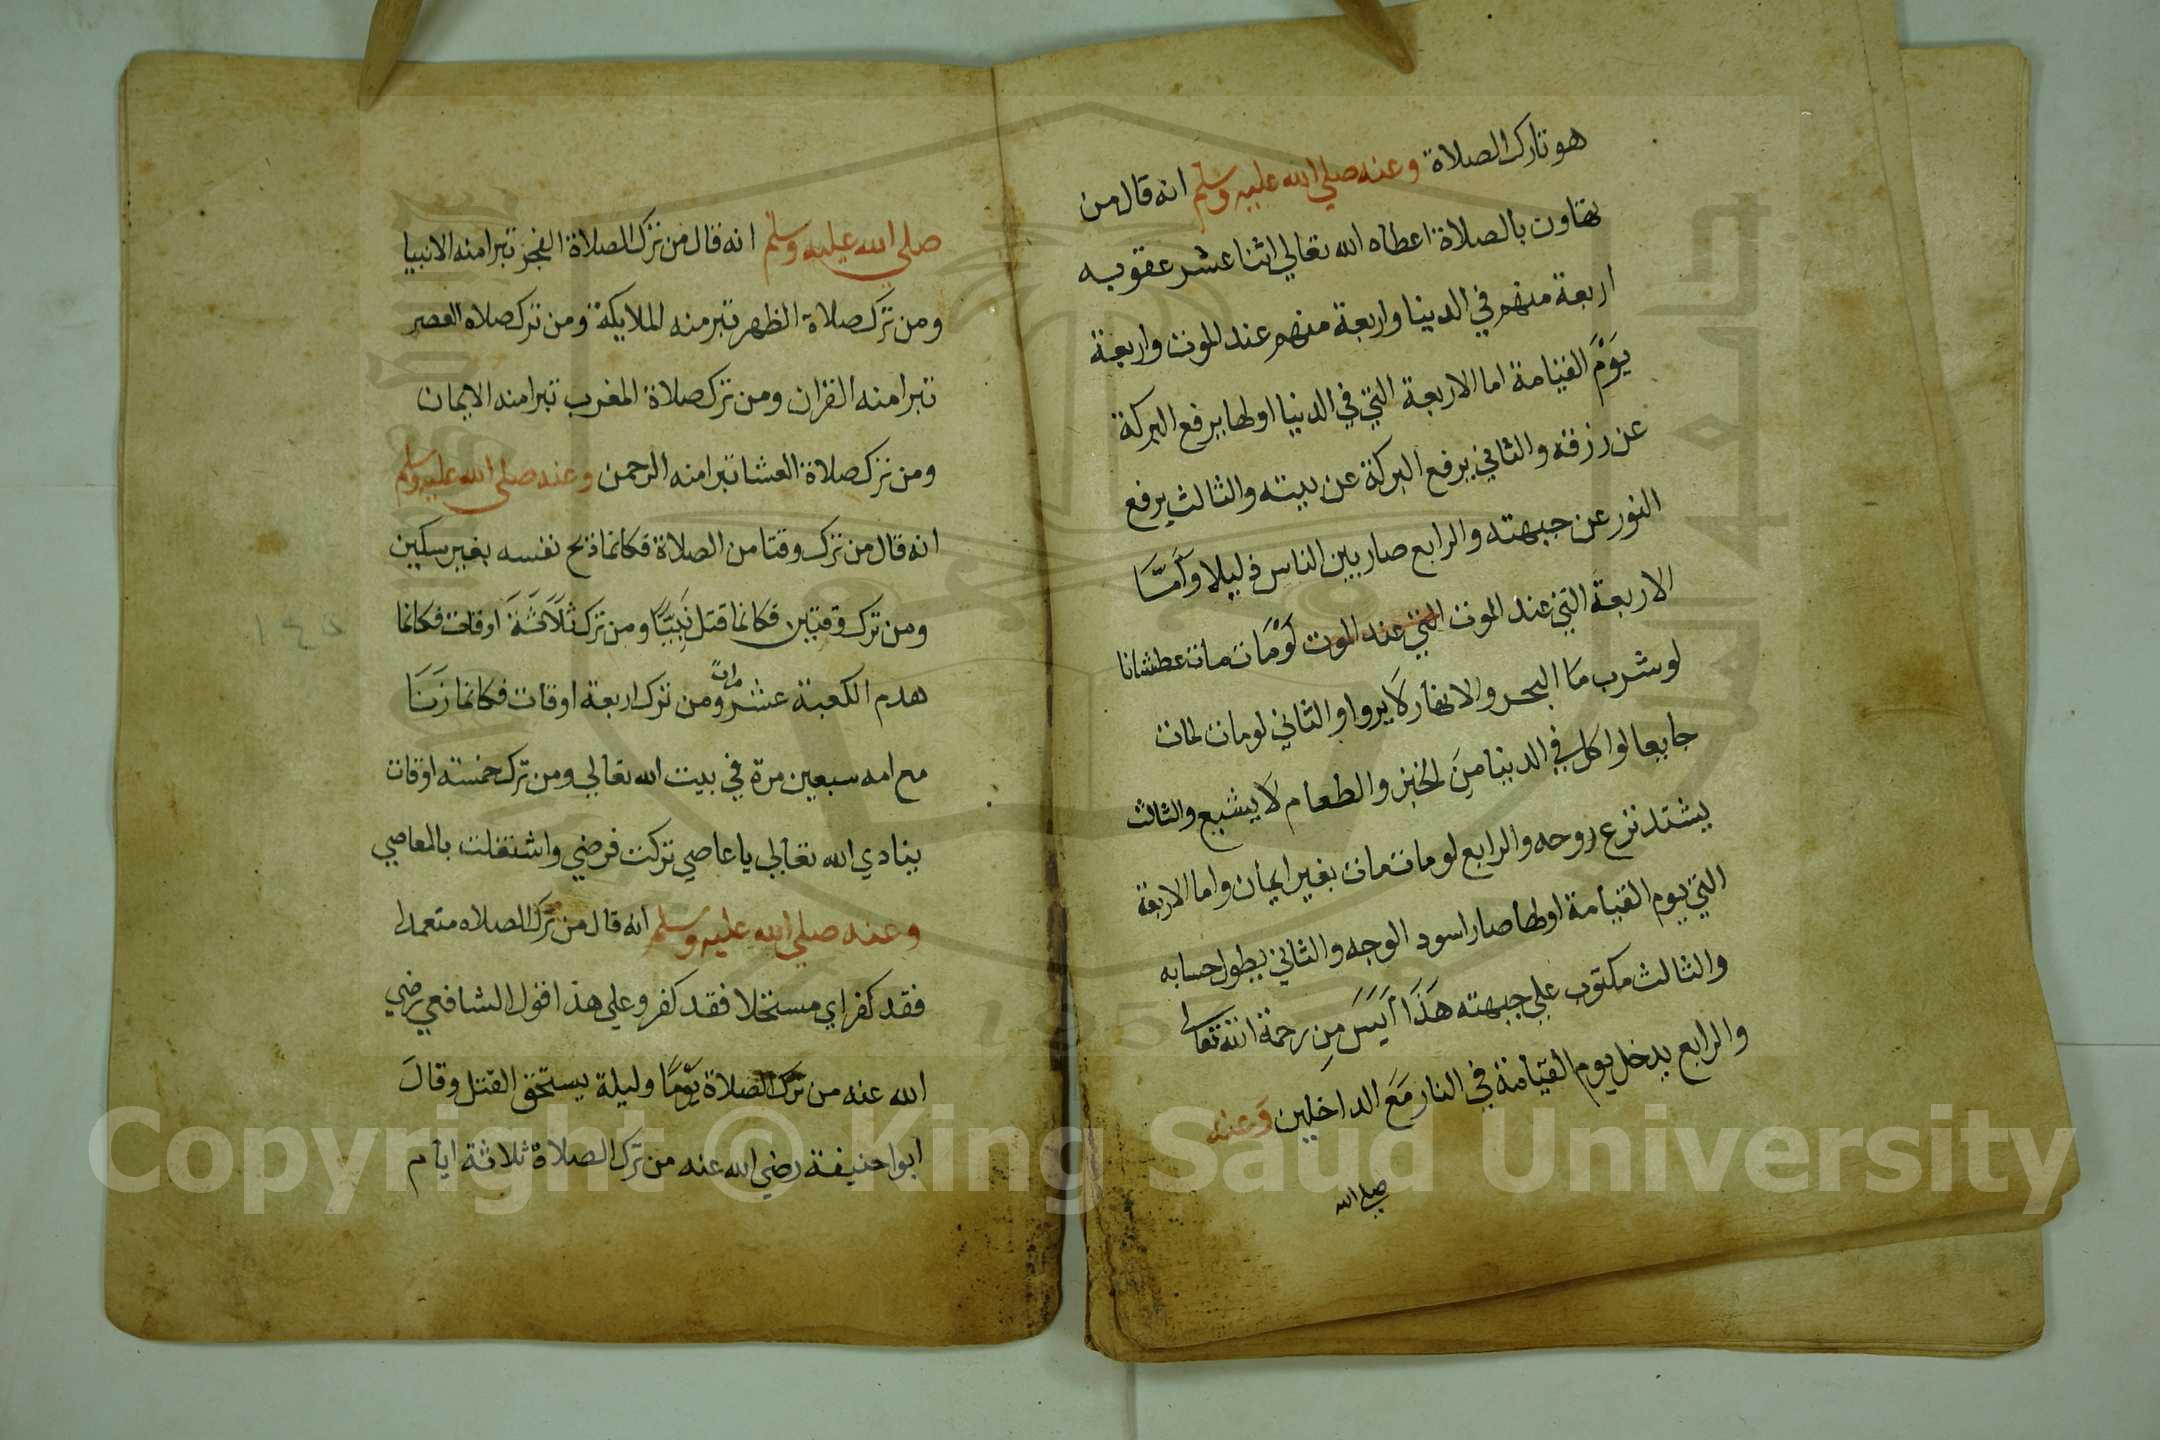 هو تارك الصلاة وعنه صلي الله عليه وسلم انه قال من
تهاون بالصلاة اعطاه الله تعالي اثنا عشر عقوبه
اربعة منهم في الدينا واربعة منهم عند الموت واربعة
يَوْمَ القيامة اما الاربعة التي في الدنيا اولها يرفع البركة
عن رزقه والثاني يرفع البركة عن بيته والثالث يرفع
النور عن جبهته والرابع صار بين الناس ذليلا وَاَمَّا
الاربعة التي عند الموت التي عند الموت لَوْمَات مات عطشانا
لو شرب مَا البحر والانهار لَا يروا والثاني لومات لمات
جايعا لوا كل في الدينا مِنَ الخبز والطعام لَا يشبع والثالث
يشتد نزع روحه والرابع لومات مات بغير ايمان واما الاربعة
التي يوم القيامة اولها صار اسود الوجه والثاني يطول حسابه
والثالث مكتوب علي جبهته هَذَا اَيَسَ مِن رحمة الله تعالى
والرابع يدخل يوم القيامة في النار مَعَ الداخلين وَعنه
صلي الله
صلي الله عليه وسلم انه قال من ترك الصلاة الفجر تبرا منه الانبيا
ومن ترك صلاة الظهر تبر منه الملايكة ومن ترك صلاه العصر
تبرا منه القران ومن ترك صلاة المغرب تبرا منه الايمان
ومن ترك صلاة العشا تبرا منه الرحمن وعنه صلى الله عليه وسلم
انه قال من ترك وقتا من الصلاة فكانما ذبح نفسه بغير سكين
ومن ترك وقتين فكانما قتل نَبِيًّا ومن ترك ثَلَاثَةَ اوقات فكانما
هدم الكعبة عشر مرات ومن ترك اربعة اوقات فكانما زَنَا
مع امه سبعين مرة في بيت الله تعالي ومن ترك خمسته اوقات
ينادي الله تعالي يا عاصي تركت فرضي واشتغلت بالمعاصي
وعنه صلي الله عليه وسلم انه قال من ترك الصلاه متعمدا
فقد كفر اي مستحلا فقد كفر وعلي هذا قول الشافعي رضي
الله عنه من ترك الصلاة يَوْمًا وليلة يستحق القتل وقالَ
ابوا حنيفة رضي الله عنه من ترك الصلاة ثلاثة ايام
Copyright © King Saud University